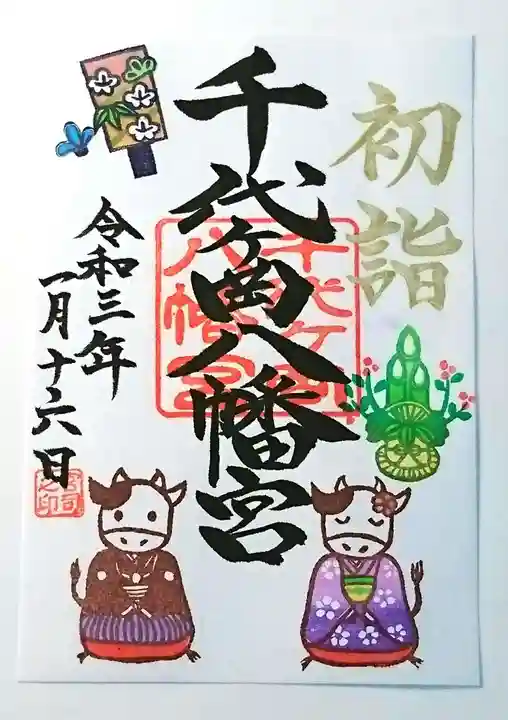 初詣
千代ヶ岡八幡宮
千代ヶ岡
八幡宮
令和三年
一月十六日
宮司
之印